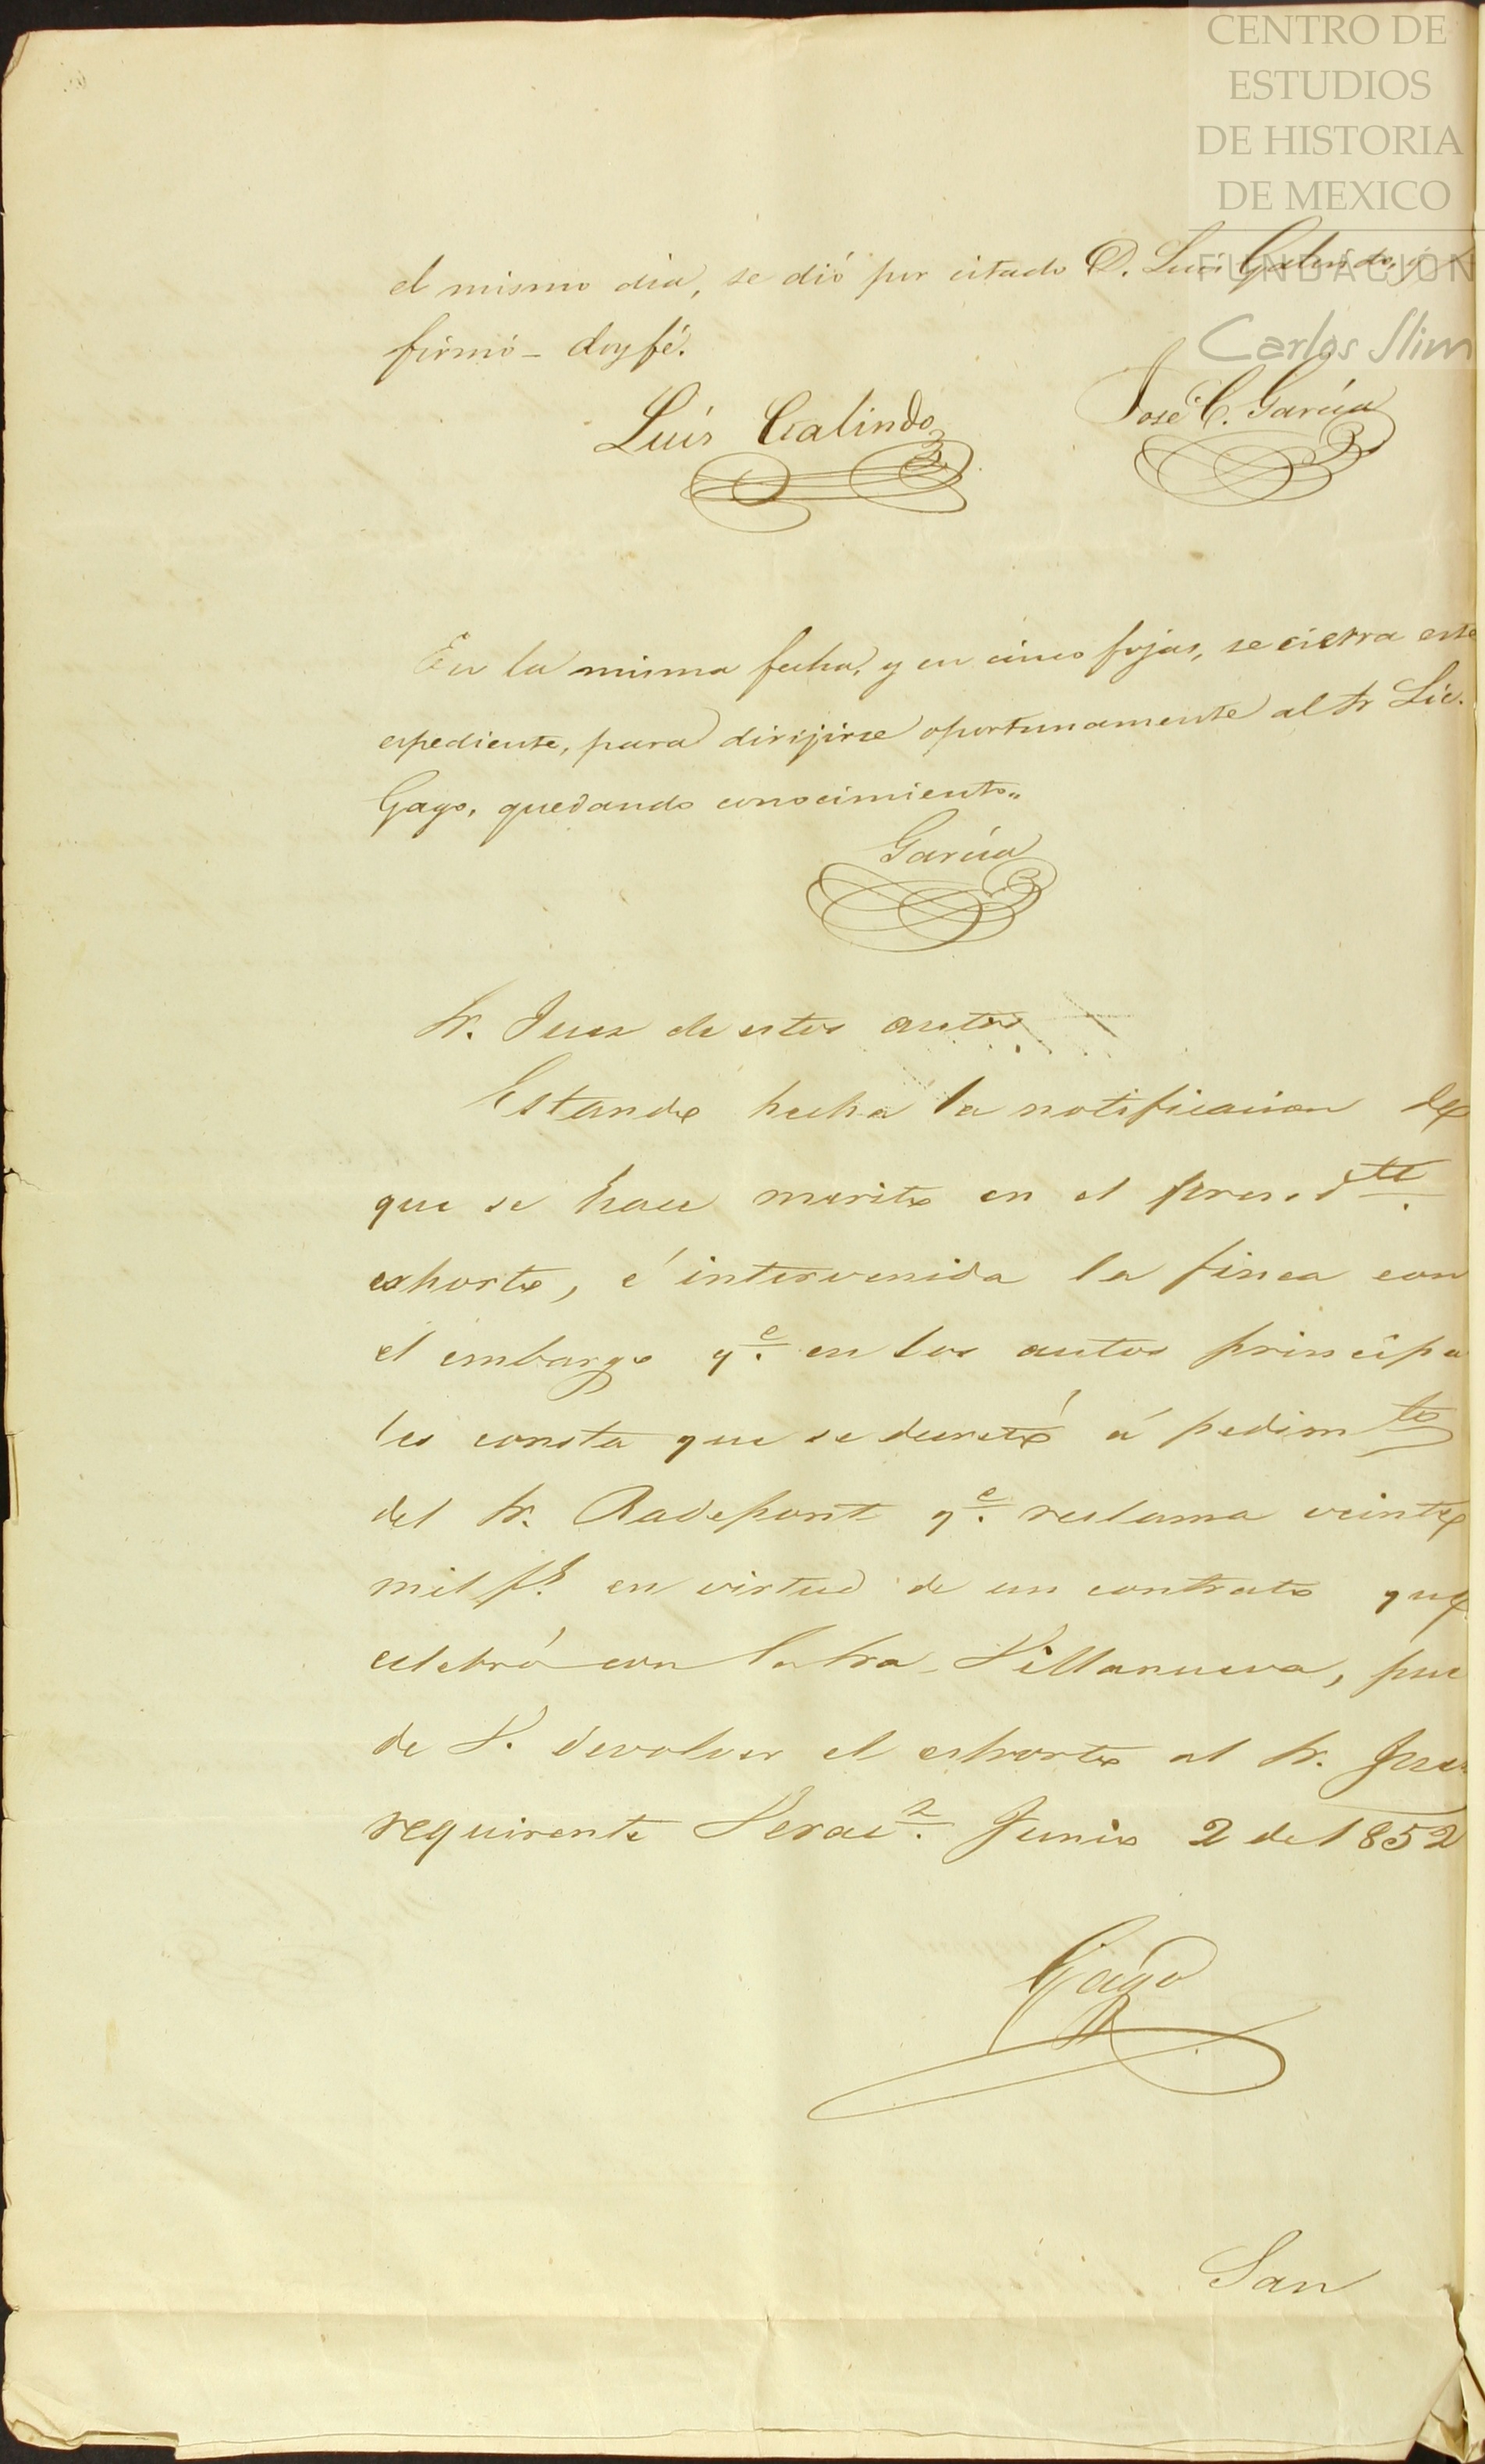 CENTRO DE
ESTUDIOS
DE HISTORIA
DE MEXICO
FUNDACION
Carlos Slim
el mismo dia, se dió por citado D. Luis Galindo, y
firmó - doy fé.
Luis Galindo
José C. García
En la misma fecha, y en cinco fojas, se cierra este
espediente, para dirijirse oportunamente al Sr Lic.
Gago, quedando conocimiento.
García
Sr. Juez de estos autos
Estando hecha la notificacion de
que se hace merito en el pres.te
exhorto, é intervenida la finca con
el embargo q.e en los autos principa
les consta que se decretó á pedimto
del Sr. Radepont q.e reclama veinte
mil p.s en virtud de un contrato que
celebró con la Sra. Villanueva, pue
de V. devolver el exhorto al Sr. Juez
requirente Verac.z Junio 2 de 1852
Gago
San